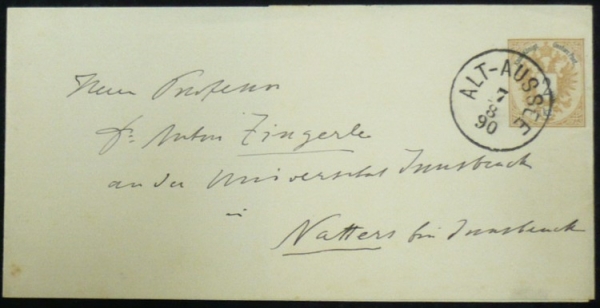 ALT-AUSSEE
7
8
90
2
Herr Professor
Dr. Anton Zingerle
an der Universität Innsbruck
in
Natters bei Innsbruck